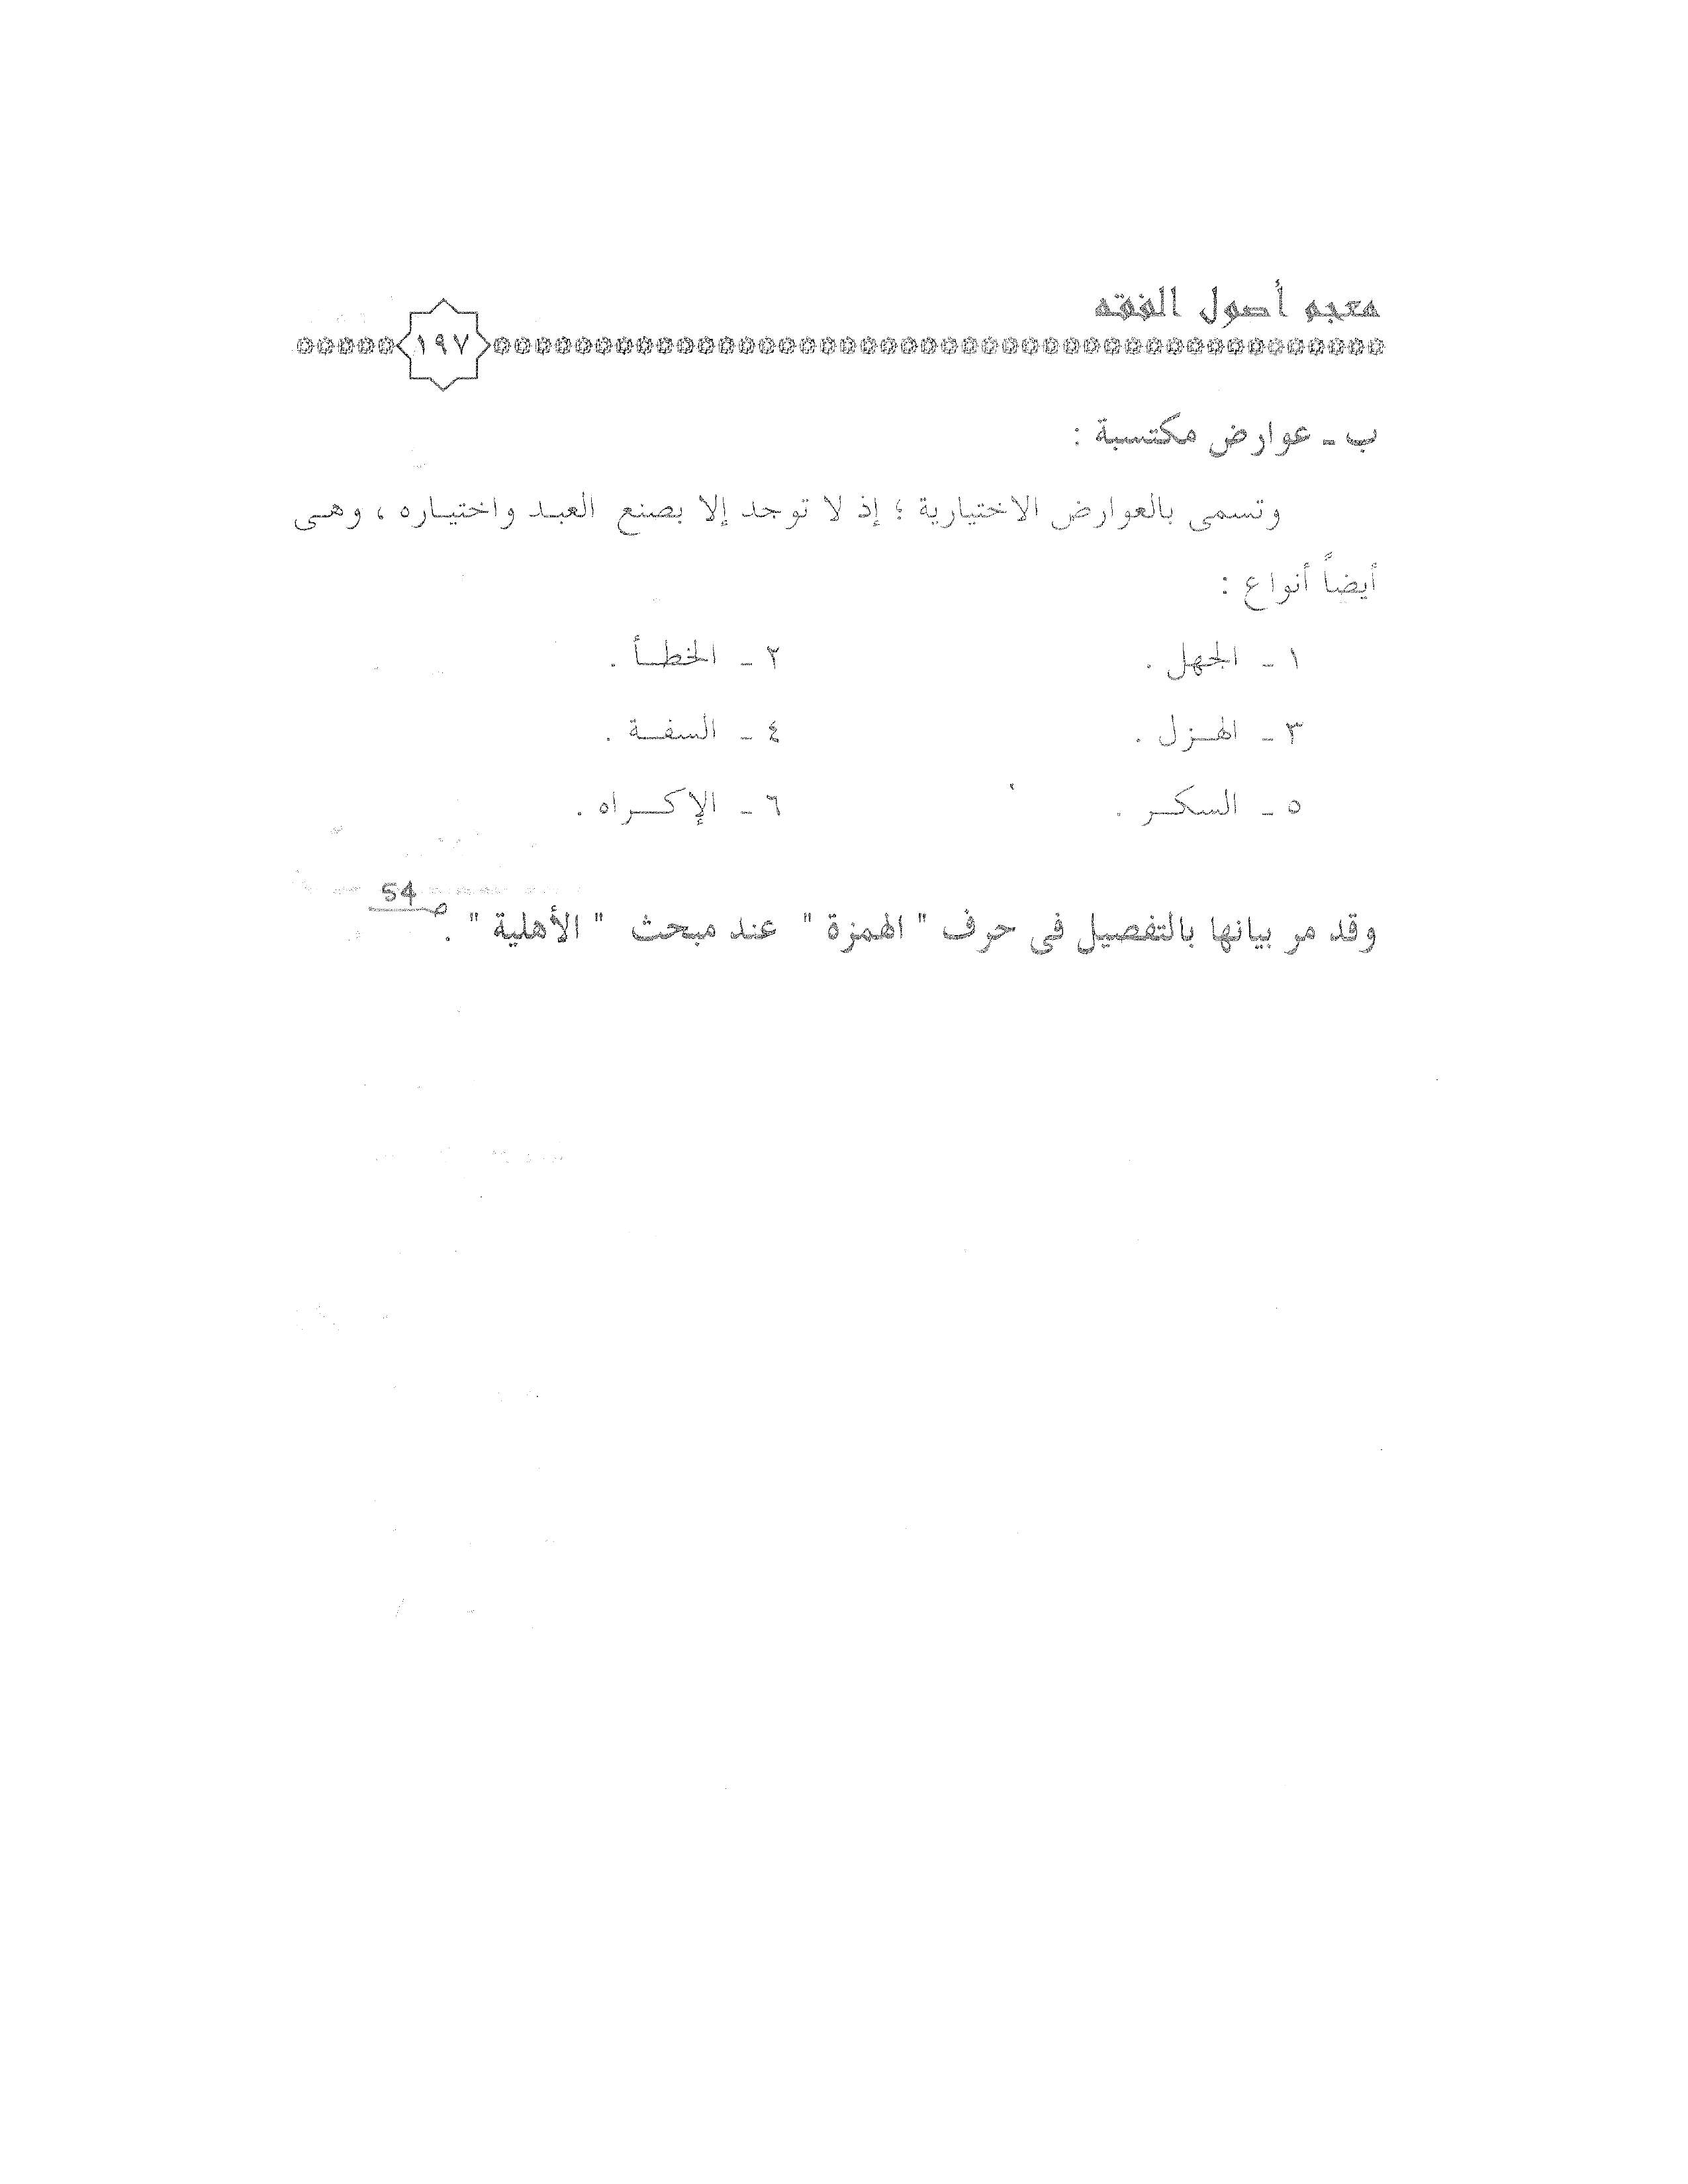 معجم أصول الفقه
١٩٧
ب ـ عوارض مكتسبة :
وتسمى بالعوارض الاختيارية ؛ إذ لا توجد إلا بصنع العبـد واختيـاره ، وهـى
أيضاً أنواع :
١ ـ الجهل . ٢ ـ الخطـأ .
٣ ـ الهـزل . ٤ ـ السفـة .
٥ ـ السكـر . ٦ ـ الإكـراه .
ص 54
وقد مر بيانها بالتفصيل فى حرف " الهمزة " عند مبحث " الأهلية " .